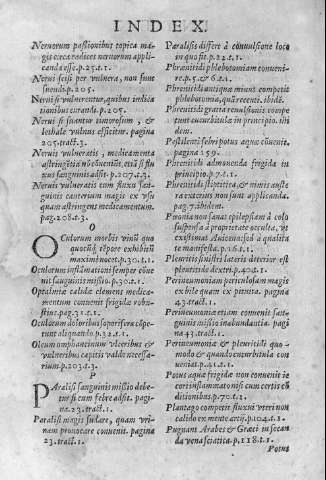 INDEX.
Neruorum passionibus topica ma-
gis circa radices neruorum appli-
canda esse. p. 25. t. 1.
Nerui scisi per vulnera, non sunt
suendi. p. 205.
Nerui si vulnerentur, quibus indica
tionibus curand. p. 205.
Nerui si fiantur tumorosum, &
lethale vulnus efficitur. pagina
205. tract. 3.
Neruis vulneratis, medicamenta
astringentia nō conueniūt, etiā si flu
xus sanguinis adsit. p. 207. t. 3.
Neruis vulneratis cum fluxu san-
guinis cauterium magis ex vsu
quam astringens medicamentum.
pag. 208. t. 3.
O
OCulorum morbis vinū qua
quocūq; tēpore exhibitū
maximè nocet. p. 30. t. 1.
Oculorum inflāmationi semper cōue
nit sanguinis missio. p. 30. t. 1.
Optalmiæ calidæ clemens medica-
mentum conuenit frigida robu-
stius. pag. 31. t. 1.
Oculorum doloribus soporifera cōpe-
tunt aliquando. p. 32. t. 1.
Oleum omphantinum vlceribus &
vulneribus capitis valdo necessa-
rium. p. 203. t. 3.
P
PAralisi sanguinis missio debe-
tur si cum febre adsit. pagi-
na. 23. tract. 1.
Paralisi magis sudare, quam vri-
nam prouocare conuenit. pagina
23. tract. 1.
Paralisis differt à conuulsione loco
in quo sit. p. 22. t. 1.
Phraenitidi phlebotomiam conueni-
re. p. 5. & 6. t. 1.
Phrenitidi antiqua minus competit
phlebotomia, quā recenti. ibidē.
Phrenitidi grata reuulsionis compe-
tunt cucurbitula in principio. ibi
dem.
Pestilenti febri potus aquæ cōuenit.
pagina 159.
Phrenitidi admouenda frigida in
principio. p. 7. t. 1.
Phrenitidi stiptica, & nimis auste
ra extecius non sunt applicanda.
pag. 7. ibidem.
Pæonia non sanat epilepsiam à tota
suspensa à proprietate occulta, vt
existimat Auicenna sed à qualita
te manifesta. p. 16. t. 1.
Pleuritis sinistri lateris deterior est
pleuritide dextri. p. 40. t. 1.
Perineumoniam periculosam magis
ex bile quam ex pituita. pagina
43. tract. 1.
Perineumonia etiam conuenit san-
guinis missio inabundantia. pagi
na 43. tract. 1.
Perineumoniæ & pleuritidi quo-
modo & quando cucurbitula con
ueniat. p. 41. t. 1.
Potus aquæ frigida non conuenit ie
cori inflammato nisi cum certis cō
ditionibus. p. 70. t. 1.
Plantago competit fluxui vteri non
calido ex mente arti. p. 104. t. 1.
Pugnant Arabes & Græci in secan
da vena sciatica. p. 118. t. 1.
Potus